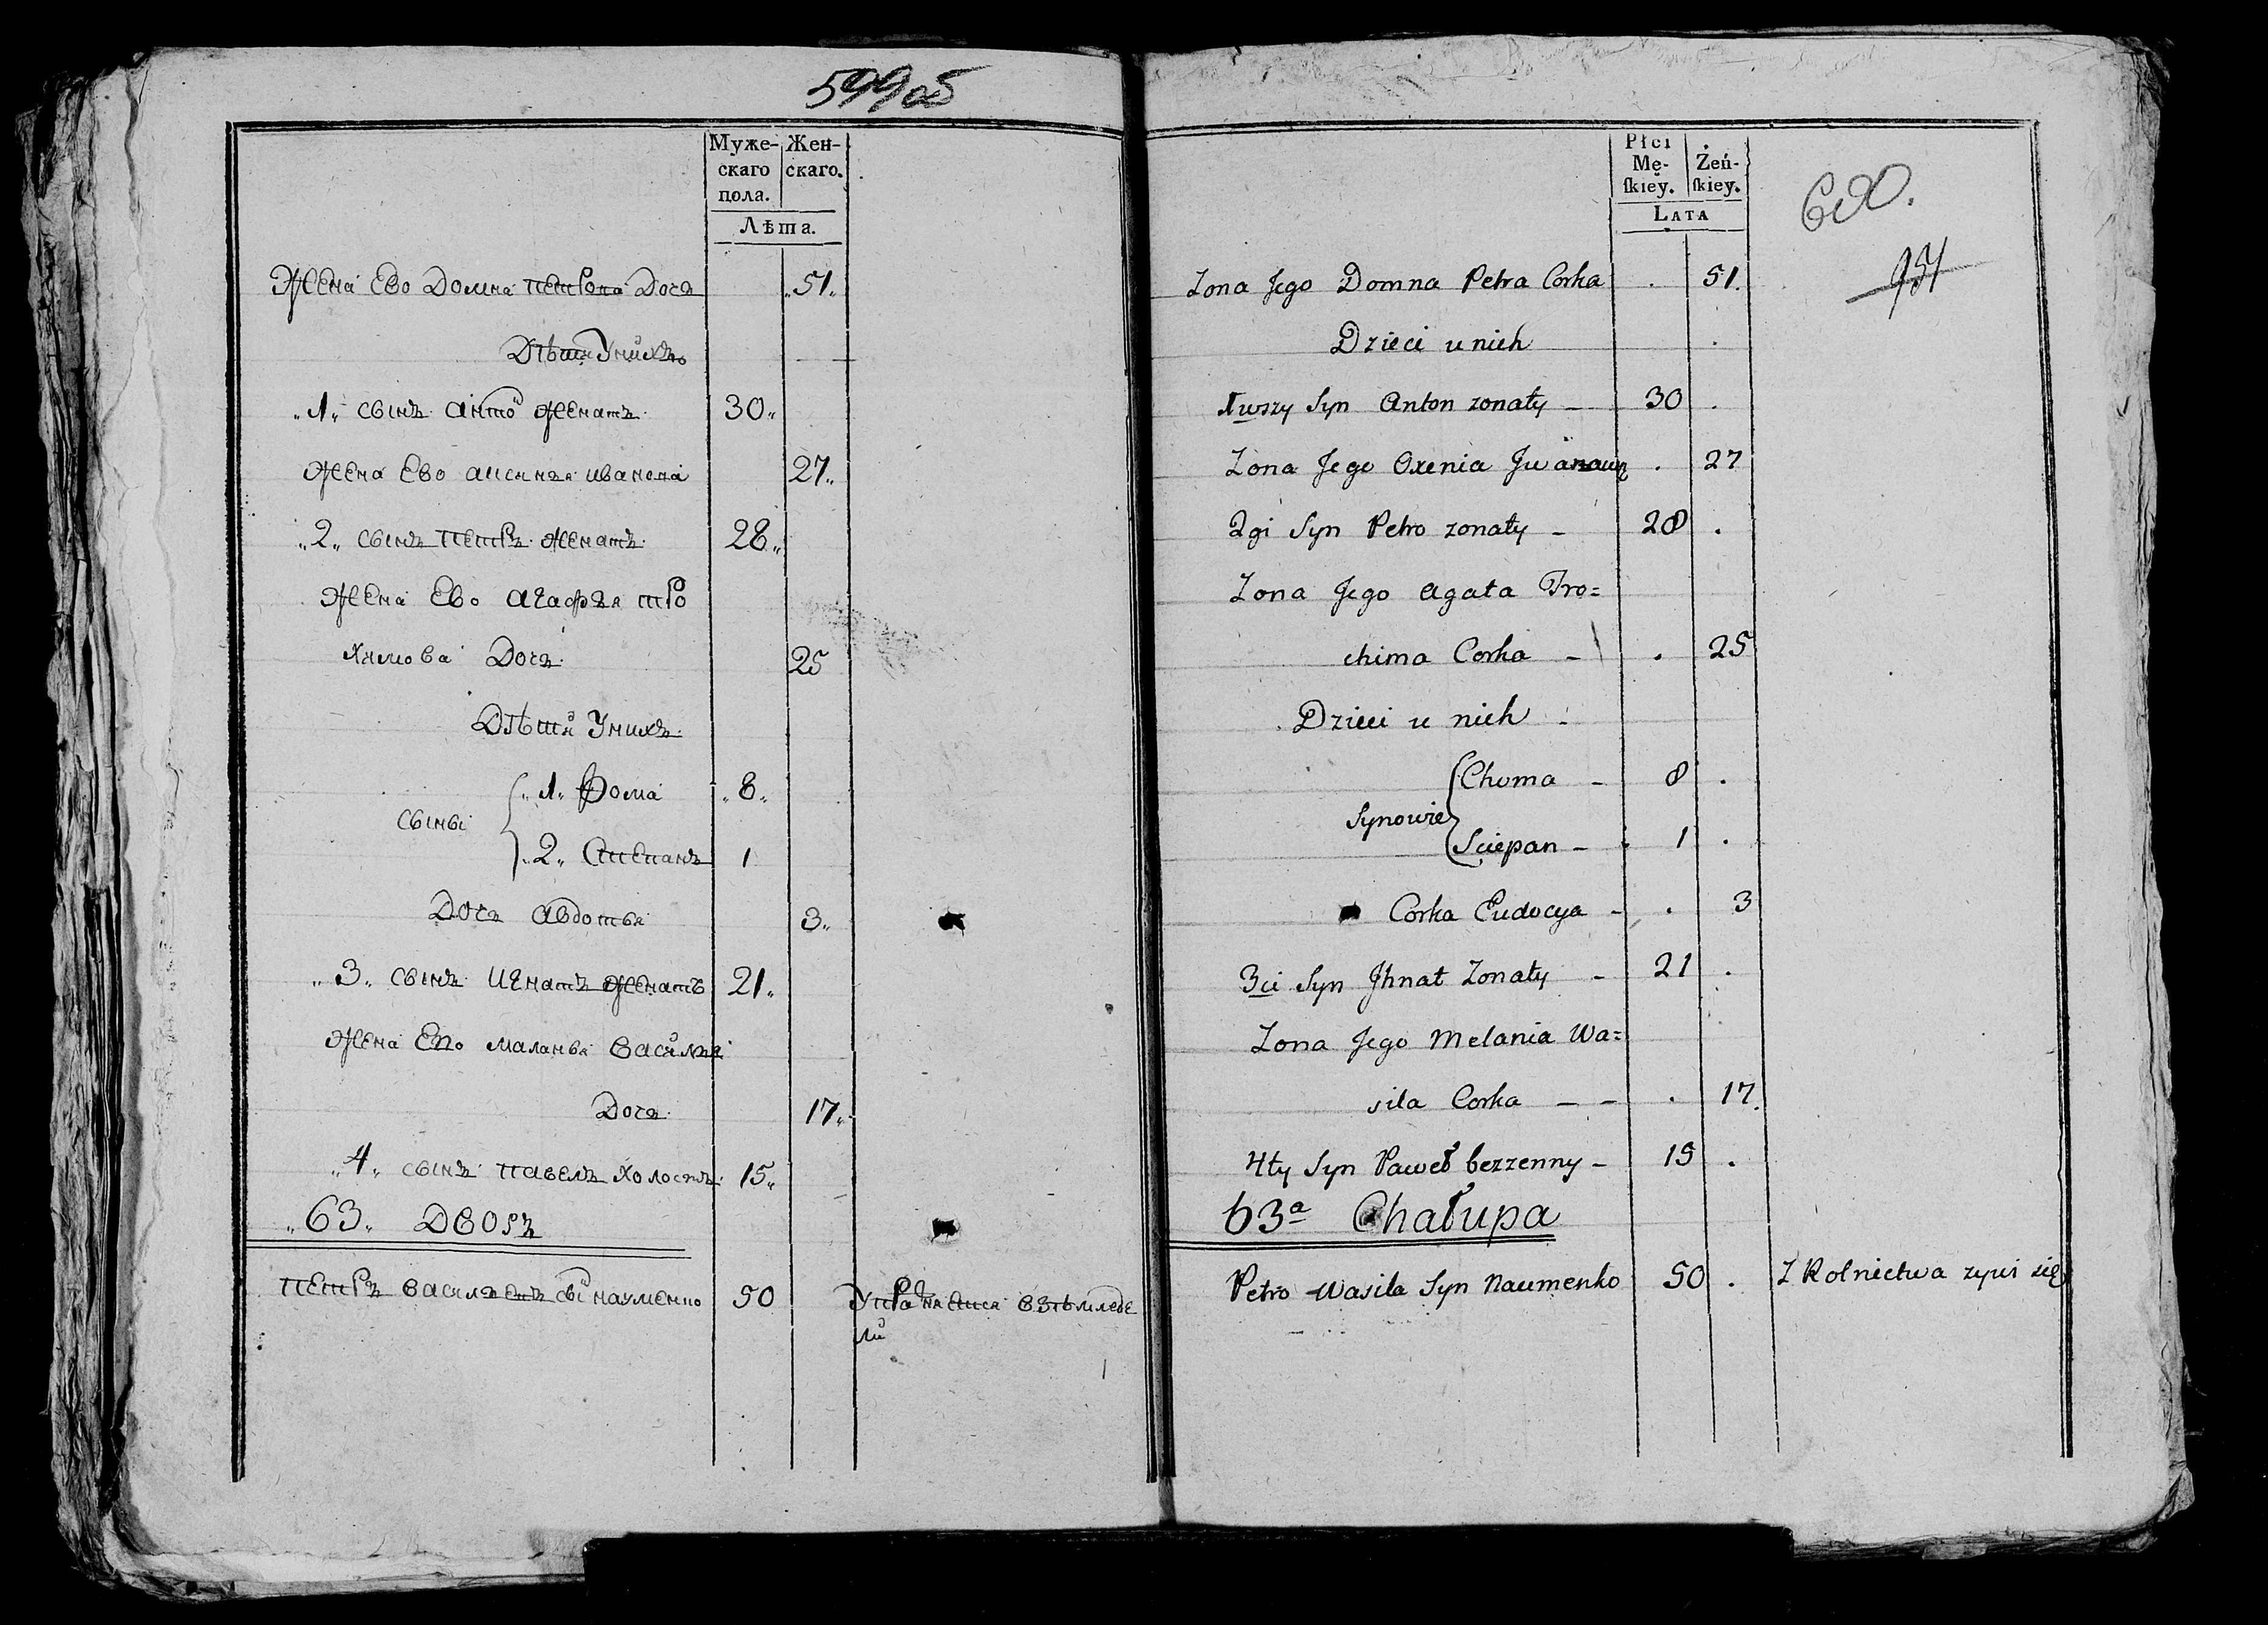 599об
Муже-
скаго
пола.
Жен-
скаго.
Лѣта.
Жена Ево Домна петрова Дочь
51
Дѣти Унихъ
1 сынъ антон женатъ
30
жена Ево аксиния иванова
27
2 сынъ петръ женатъ
28
жена Ево агафья тро
химова Дочь
25
Дѣти Унихъ
сыны
1 Фома
8
2 Степанъ
1
Дочь авдотья
3
3 сынъ игнатъ женатъ
21
жена Ево маланья васильи
Дочь
17
4 сынъ павелъ холостъ
15
63 Дворъ
петръ васильевъ сын науменко
50
Płci
Mę-
ſkiey.
Żeń-
ſkiey.
Lata
600.
Zona Jego Domna Petra Corka
51.
Dzieci u nich
1wszy Syn Anton zonaty –
30
Zona Jego Oxenia Jwanowa
27
2gi Syn Petro zonaty –
28
Zona Jego Agata Tro=
chima Corka –
25
Dzieci u nich
Synowie
Choma –
8
Sciepan –
1
Corka Eudocya –
3
3ci Syn Jhnat Zonaty –
21
Zona Jego Melania Wa=
sila Corka – –
17.
4ty Syn Paweł bezzenny –
15
63a Chałupa
Petro Wasila Syn Naumenko
50
Z Rolnictwa zywi się